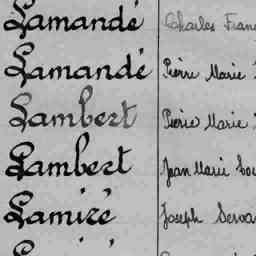 Lamandé Charles Fran
Lamandé Pierre Marie
Lambert Pierre Marie
Lambert Jean Marie Lou
Lamizé Joseph Serva